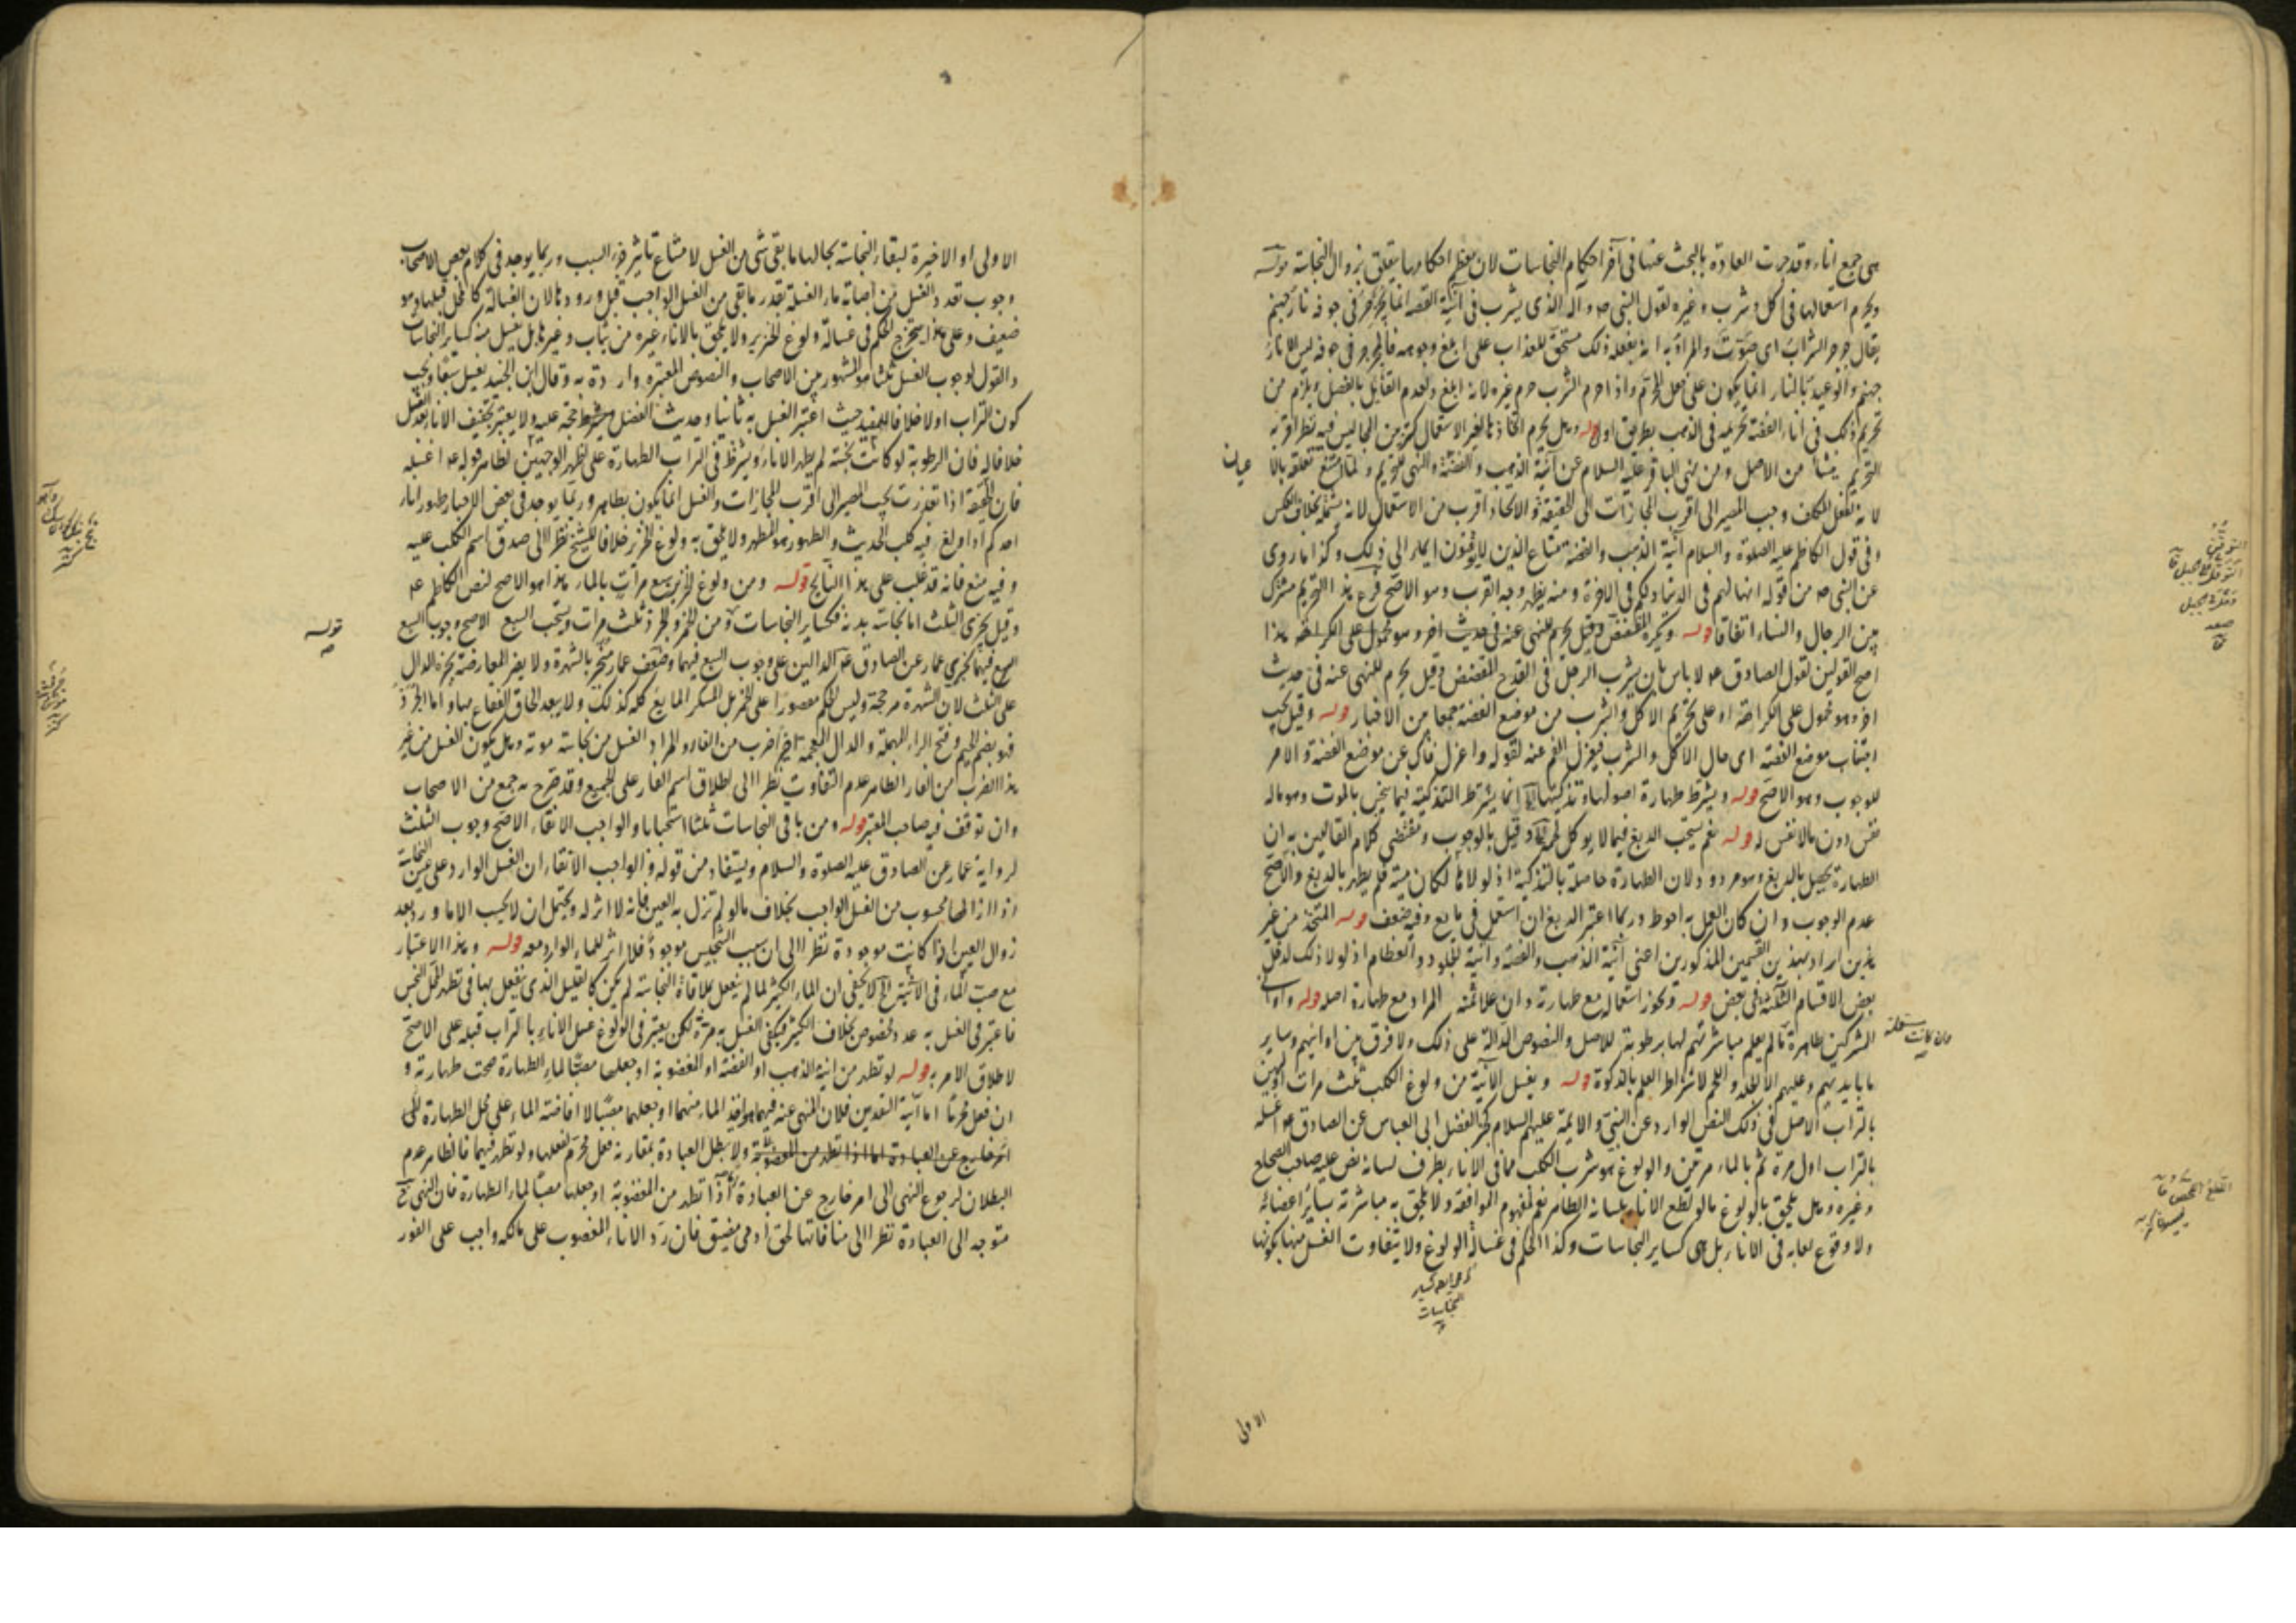 هي جمع اناء وقد جرت العادة بالبحث عنها في آخر احكام النجاسات لان معظم احكامها يتعلق بزوال النجاسة قوله
ويحرم استعمالها في اكل وشرب وغيره لقول النبي ص وآله الذي يشرب في آنية الفضة انما يجرجر في جوفه نار جهنم
يقال جرجر الشراب اي صوّت والمراد به انه بفعله ذلك مستحق للعذاب على ابلغ وجوهه فالمجرجر في جوفه ليس الا نار
جهنم والوعيد بالنار انما يكون على فعل المحرم واذا حرم الشرب حرم غيره لانه ابلغ ولعدم القايل بالفصل ويلزم من
تحريم ذلك في اناء الفضة تحريمه في الذهب بطريق اولى قوله وهل يحرم اتخاذها لغير الاستعمال كتزيين المجالس فيه نظر اقربه
التحريم ينشأ من الاصل ومن نهي الباقر عليه السلام عن آنية الذهب والفضة والنهي للتحريم ولما امتنع تعلقه بالاعيان
لانه لفعل المكلف وجب المصير الى اقرب المجازات الى الحقيقة والاتخاذ اقرب من الاستعمال لانه يشمله بخلاف العكس
وفي قول الكاظم عليه الصلوة والسلام آنية الذهب والفضة متاع الذين لا يوقنون ايماء الى ذلك وكذا ما روي
عن النبي ص من قوله انها لهم في الدنيا ولكم في الاخرة ومنه يظهر وجه القرب وهو الاصح فرع هذا التحريم مشترك
بين الرجال والنساء اتفاقا قوله ويكره المفضض وقيل يحرم للنهي عنه في حديث اخر وهو محمول على الكراهة هذا
اصح القولين لقول الصادق ع لا باس بان يشرب الرجل في القدح المفضض وقيل يحرم للنهي عنه في حديث
اخر وهو محمول على الكراهة او على تحريم الاكل والشرب من موضع الفضة جمعا بين الاخبار قوله وقيل يجب
اجتناب موضع الفضة اي حال الاكل والشرب فيعزل الفم عنه لقوله واعزل فاك عن موضع الفضة والامر
للوجوب وهو الاصح قوله ويشترط طهارة اصولها وتذكيتها انما يشترط التذكية فيما ينجس بالموت وهو ماله
نفس دون مالا نفس له قوله نعم يستحب الدبغ فيما لا يوكل لحمه وقيل بالوجوب ومقتضى كلام القائلين به ان
الطهارة تحصل بالدبغ وهو مردود لان الطهارة حاصلة بالتذكية اذ لولاها لكان ميتة فلم يطهر بالدبغ والاصح
عدم الوجوب وان كان العمل به احوط وربما اعتبر الدبغ ان استعمل في مايع وفيه ضعف قوله المتخذ من غير
هذين اراد بهذين القسمين المذكورين اعني آنية الذهب والفضة وآنية الجلود والعظام اذ لولا ذلك لدخل
بعض الاقسام الثلثة في بعض قوله ويجوز استعماله مع طهارته وان غلا ثمنه المراد مع طهارة اصله قوله واواني
المشركين طاهرة ما لم يعلم مباشرتهم لها برطوبة للاصل والنصوص الدالة على ذلك ولا فرق بين اوانيهم وساير
وان كانت مستعملة
ما بايديهم وعليهم الا الجلد واللحم لاشتراط العلم بالذكوة قوله ويغسل الآنية من ولوغ الكلب ثلث مرات اوليهن
بالتراب الاصل في ذلك النص الوارد عن النبي والائمة عليهم السلام كخبر الفضل ابي العباس عن الصادق ع اغسله
بالتراب اول مرة ثم بالماء مرتين والولوغ هو شرب الكلب مما في الاناء بطرف لسانه نص عليه صاحب الصحاح
وغيره وهل يلحق بالولوغ ما لو لطع الاناء بلسانه الظاهر نعم لمفهوم الموافقة ولا يلحق به مباشرته بسائر اعضائه
ولا وقوع لعابه في الاناء بل هي كساير النجاسات وكذا الحكم في غسالة الولوغ ولا يتفاوت الغسل منها بكونها
النجاسات
الاولى
الاولى او الاخيرة لبقاء النجاسة بحالها ما بقي شيء من الغسل لامتناع تاثير جزء السبب وربما يوجد في كلام بعض الاصحاب
وجوب تعدد الغسل من اصابة ماء الغسلة بقدر ما بقي من الغسل الواجب قبل ورودها لان الغسالة كالمحل قبلها وهو
ضعيف وعلى هذا يستخرج الحكم في غسالة ولوغ الخنزير ولا يلحق بالاناء غيره من ثياب وغيرها بل يغسل منه كساير النجاسات
والقول لوجوب الغسل ثلثا هو المشهور بين الاصحاب والنصوص المعتبرة واردة به وقال ابن الجنيد يغسل سبعا ويجب
كون التراب اولا خلافا للمفيد حيث اعتبر الغسل به ثانيا وحديث الفضل حجة عليه ولا يعتبر تجفيف الاناء بعد الغسل
خلافا له فان الرطوبة لو كانت نجسة لم يطهر الاناء ويشترط في التراب الطهارة على اظهر الوجهين لظاهر قوله ع اغسله
فان الحقيقة اذا تعذرت يجب المصير الى اقرب المجازات والغسل انما يكون بطاهر وربما يوجد في بعض الاخبار طهور اناء
احدكم اذا ولغ فيه كلب الحديث والطهور هو المطهر ولا يلحق به ولوغ الخنزير خلافا للشيخ نظرا الى صدق اسم الكلب عليه
وفيه منع فانه قد غلب على هذا النابح قوله ومن ولوغ الخنزير سبع مرات بالماء هذا هو الاصح لنص الكاظم ع
وقيل يجزى الثلث اما نجاسة بدنه فكساير النجاسات قوله ومن الخمر والجرذ ثلث مرات ويستحب السبع الاصح وجوب السبع
السبع فيهما لخبري عمار عن الصادق ع الدالين على وجوب السبع فيهما وضعف عمار منجبر بالشهرة ولا يضر المعارضة بخبره الدال
على الثلث لان الشهرة مرجحة وليس الحكم مقصورا على الخمر بل المسكر المايع كله كذلك ولا يبعد الحاق الفقاع بها واما الجرذ
فهو بضم الجيم وفتح الراء المهملة والذال المعجمة اخيرا ضرب من الفار والمراد الغسل من نجاسة موته وهل يكون الغسل من غير
هذا الضرب من الفار الظاهر عدم التفاوت نظرا الى اطلاق اسم الفار على الجميع وقد صرح به جمع من الاصحاب
وان توقف فيه صاحب المعتبر قوله ومن باقي النجاسات ثلثا استحبابا والواجب الانقاء الاصح وجوب الثلث
لرواية عمار عن الصادق عليه الصلوة والسلام ويستفاد من قوله والواجب الانقاء ان الغسل الوارد على عين النجاسة
اذا ازالها محسوب من الغسل الواجب بخلاف ما لو لم تزل به العين فانه لا اثر له ويحتمل ان لا يحسب الا ما ورد بعد
زوال العين اذا كانت موجودة نظرا الى ان سبب التنجيس موجود فلا اثر للماء الوارد معه قوله وهذا الاعتبار
مع صب الماء في الآنية الخ لا يخفى ان الماء الكثير لما لم ينفعل بملاقاة النجاسة لم يكن كالقليل الذي ينفعل بها في تطهير المحل النجس
فاعتبر في الغسل به عدد مخصوص بخلاف الكثير فيكفي الغسل به مرة لكن يعتبر في الولوغ غسل الاناء بالتراب قبله على الاصح
لاطلاق الامر به قوله لو تطهر من آنية الذهب او الفضة او المغصوبة او جعلها مصبا لماء الطهارة صحت طهارته و
ان فعل محرما اما آنية النقدين فلان المنهي عنه فيهما هو اخذ الماء منهما او جعلهما مصبا لا افاضة الماء على محل الطهارة
امر خارج عن العبادة اما اذا تطهر من المغصوبة ولا يبطل العبادة بمقارنة فعل محرم لفعلها ولو تطهر فيهما فالظاهر عدم
البطلان لرجوع النهي الى امر خارج عن العبادة واما اذا تطهر من المغصوبة او جعلها مصبا لماء الطهارة فان النهي ح
متوجه الى العبادة نظرا الى منافاتها لحق آدمي مضيق فان رد الاناء المغصوب على مالكه واجب على الفور
قوله